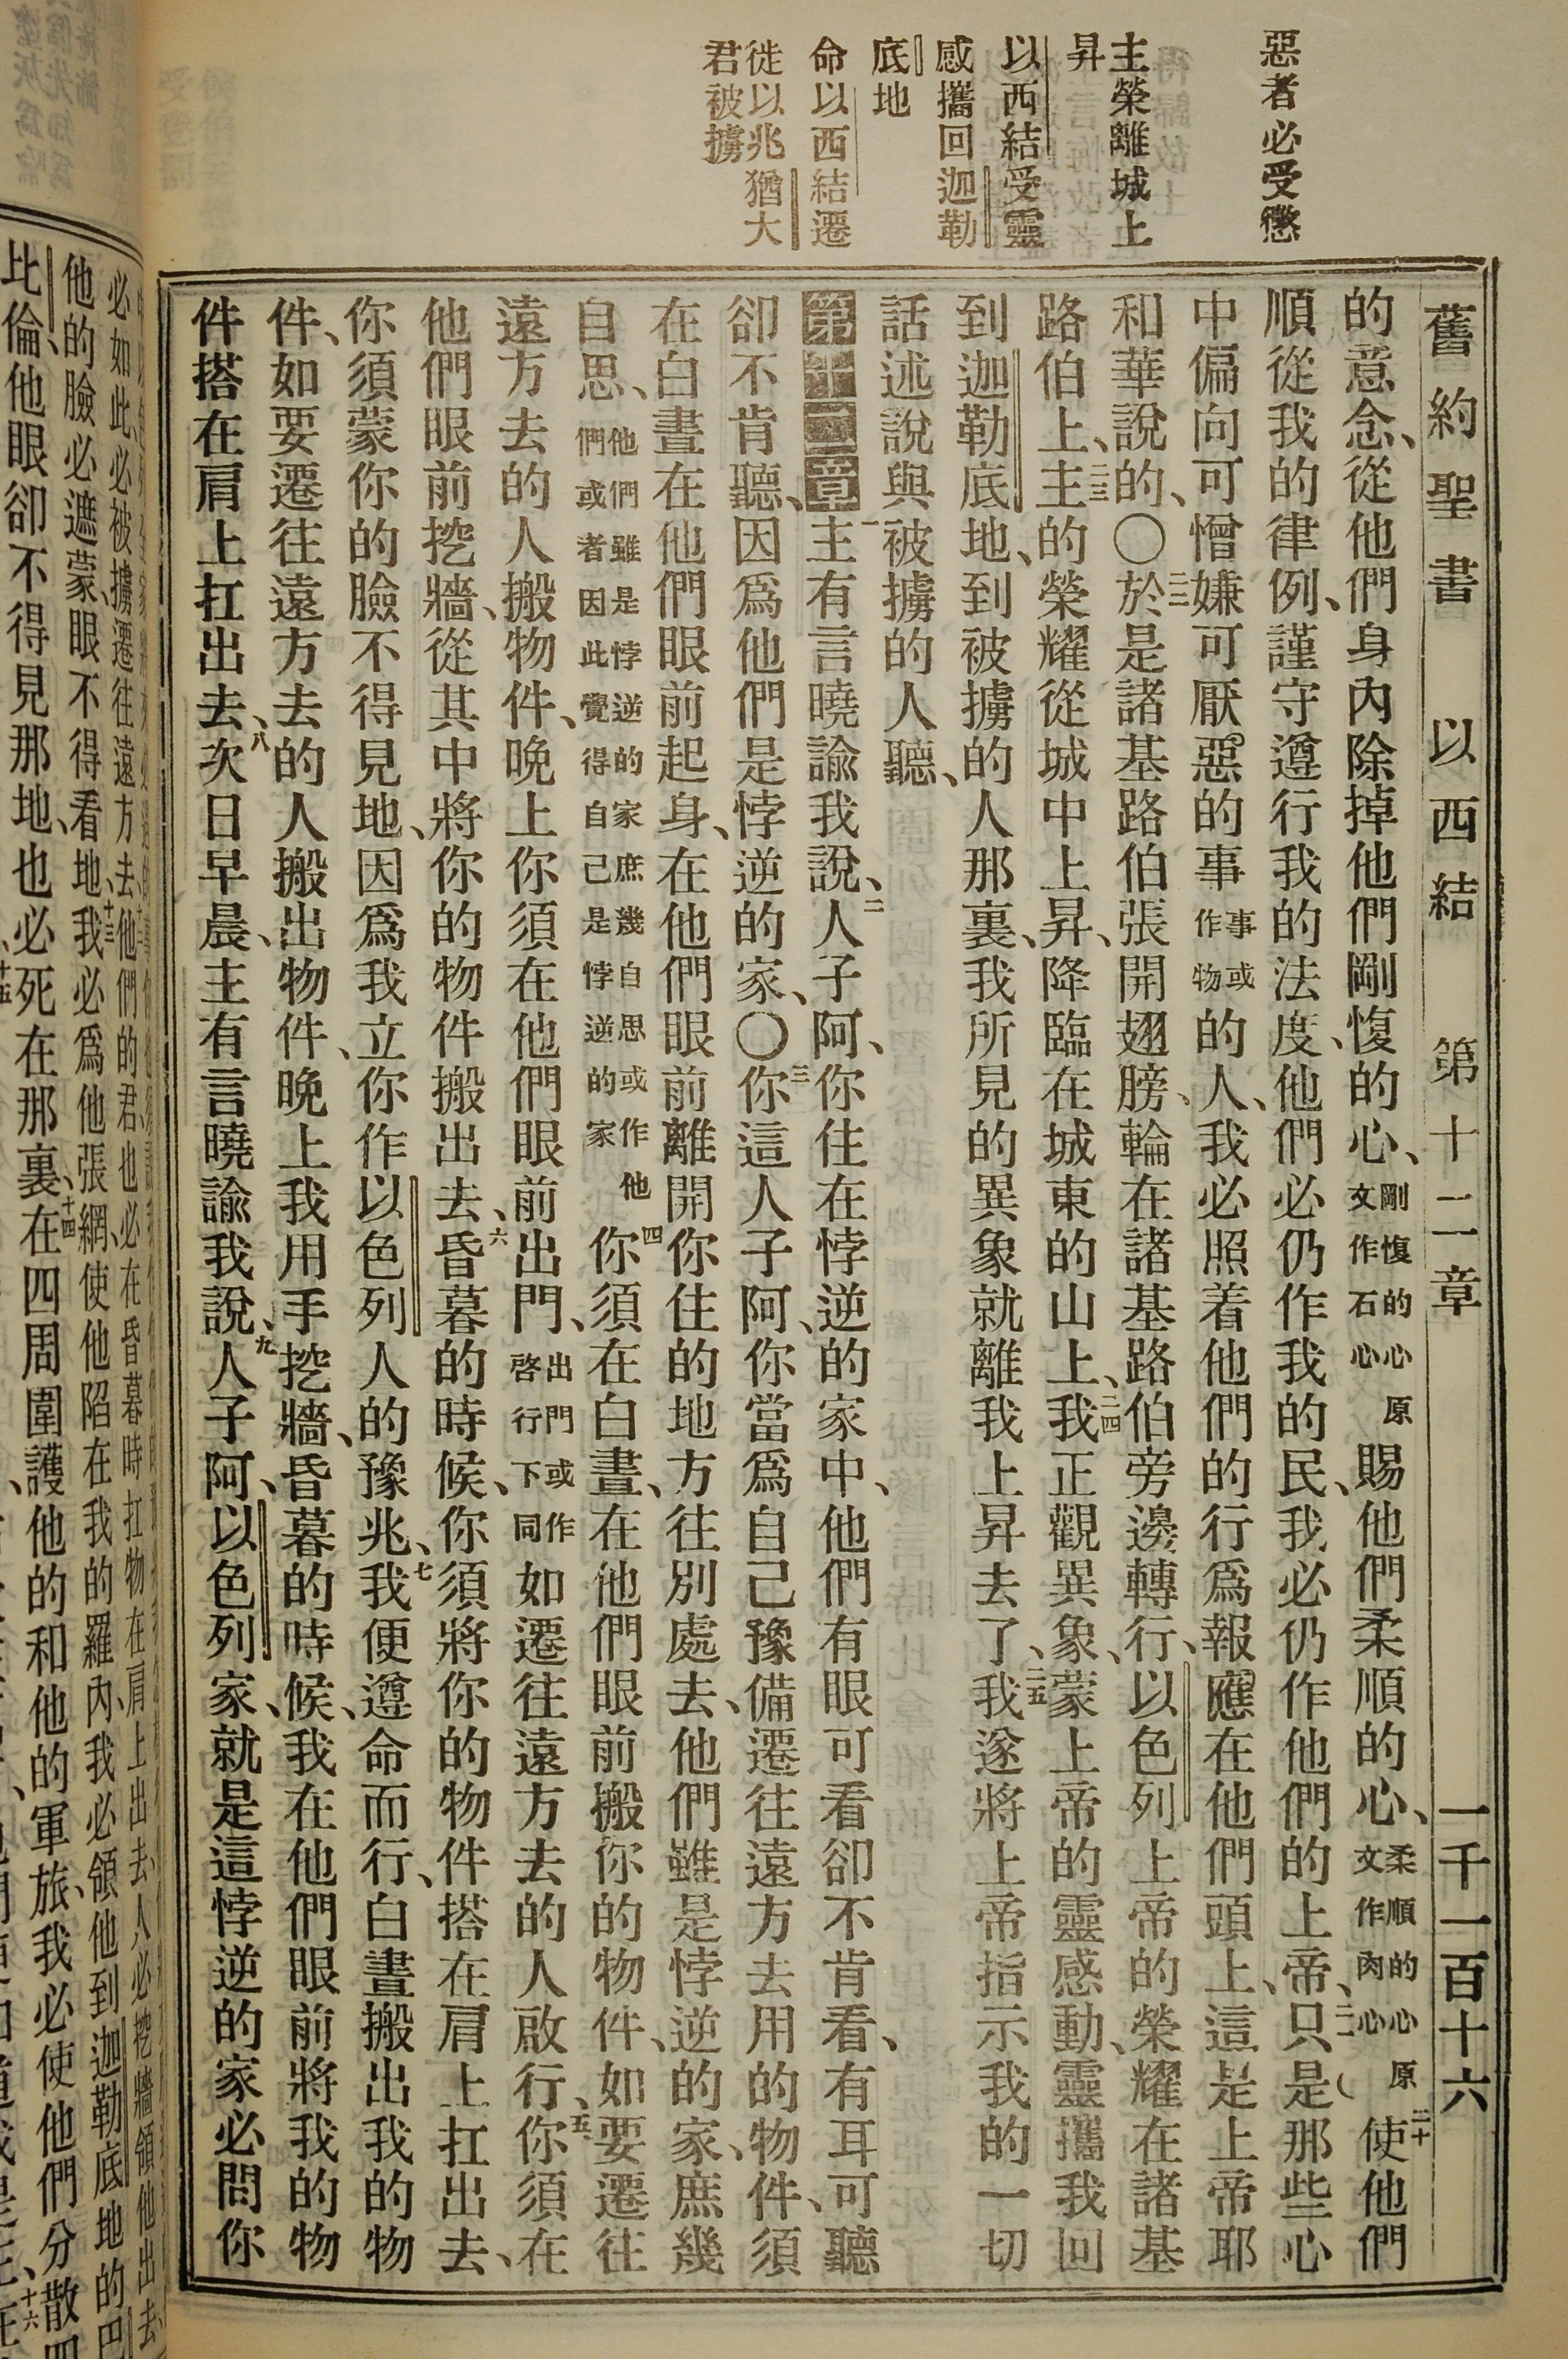 惡者必受懲
主榮離城上
昇
以西結受靈
感攜回迦勒
底地
命以西結遷
徙以兆猶大
君被擄
舊約聖書 以西結 第十二章 一千一百十六
的意念、從他們身內除掉他們剛愎的心、剛愎的心原文作石心賜他們柔順的心、柔順的心原文作肉心二十使他們
順從我的律例、謹守遵行我的法度、他們必仍作我的民、我必仍作他們的上帝、二一只是那些心
中偏向可憎嫌可厭惡的事事或作物的人、我必照着他們的行爲報應在他們頭上、這是上帝耶
和華說的、〇二二於是諸基路伯張開翅膀、輪在諸基路伯旁邊轉行、以色列上帝的榮耀在諸基
路伯上、二三主的榮耀從城中上昇、降臨在城東的山上、二四我正觀異象、蒙上帝的靈感動、靈攜我回
到迦勒底地、到被擄的人那裏、我所見的異象就離我上昇去了、二五我遂將上帝指示我的一切
話述說與被擄的人聽、
第十二章一主有言曉諭我說、二人子阿、你住在悖逆的家中、他們有眼可看卻不肯看、有耳可聽
卻不肯聽、因爲他們是悖逆的家、〇三你這人子阿、你當爲自己豫備遷往遠方去用的物件、須
在白晝在他們眼前起身、在他們眼前離開你住的地方往別處去、他們雖是悖逆的家、庶幾
自思、他們雖是悖逆的家庶幾自思或作他們或者因此覺得自己是悖逆的家四你須在白晝、在他們眼前搬你的物件、如要遷往
遠方去的人搬物件、晚上你須在他們眼前出門、出門或作啓行下同如遷往遠方去的人啟行、五你須在
他們眼前挖牆、從其中將你的物件搬出去、六昏暮的時候、你須將你的物件搭在肩上扛出去、
你須蒙你的臉不得見地、因爲我立你作以色列人的豫兆、七我便遵命而行、白晝搬出我的物
件、如要遷往遠方去的人搬出物件、晚上我用手挖牆、昏暮的時候、我在他們眼前將我的物
件搭在肩上扛出去、八次日早晨、主有言曉諭我說、九人子阿、以色列家、就是這悖逆的家必問你
必如此、必被擄遷往遠方去、十二他們的君也必在昏暮時扛物在肩上出去、人必挖牆領他出去、
他的臉必遮蒙、眼不得看地、十三我必爲他張網、使他陷在我的羅內、我必領他到迦勒底地的巴
比倫、他眼卻不得見那地、也必死在那裏、十四在四周圍護他的和他的軍旅、我必使他們分散